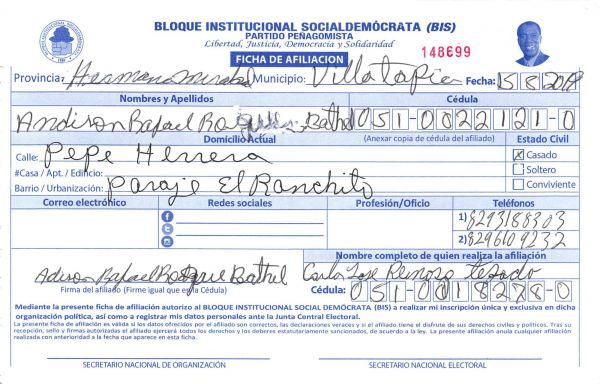 BLOQUE INSTITUCIONAL SOCIALDEMÓCRATA (BIS)
PARTIDO PEÑAGOMISTA
Libertad, Justicia, Democracia y Solidaridad
FICHA DE AFILIACION
148699
Provincia: Hermana Mirabal Municipio: Villa Tapia Fecha: 15 8 2018
Nombres y Apellidos Cédula
Andison Rafael Bathel 051-0022121-0
Domicilio Actual (Anexar copia de cédula del afiliado) Estado Civil
Calle: Pepe Herrera
X Casado
#Casa / Apt. / Edificio:
Soltero
Barrio / Urbanización: Paraje El Ranchito
Conviviente
Correo electrónico Redes sociales Profesión/Oficio Teléfonos
1) 8293188303
2) 8296109232
Nombre completo de quien realiza la afiliación
Adison Rafael Bathel Carlos Jose Reinoso
Firma del afiliado (Firme igual que en la Cédula) Cédula: 051-0018278-0
Mediante la presente ficha de afiliación autorizo al BLOQUE INSTITUCIONAL SOCIAL DEMÓCRATA (BIS) a realizar mi inscripción única y exclusiva en dicha
organización política, así como a registrar mis datos personales ante la Junta Central Electoral.
La presente ficha de afiliación es válida si los datos ofrecidos por el afiliado son correctos, las declaraciones veraces y si el afiliado tiene el disfrute de sus derechos civiles y políticos. Tras su
recepción, sello y firmas autorizadas el afiliado ejercerá todos los derechos y los deberes estatutariamente sancionados, de acuerdo a la ley. La presente afiliación anula cualquier afiliación
realizada con anterioridad a la fecha que aparece en esta ficha.
SECRETARIO NACIONAL DE ORGANIZACIÓN SECRETARIO NACIONAL ELECTORAL